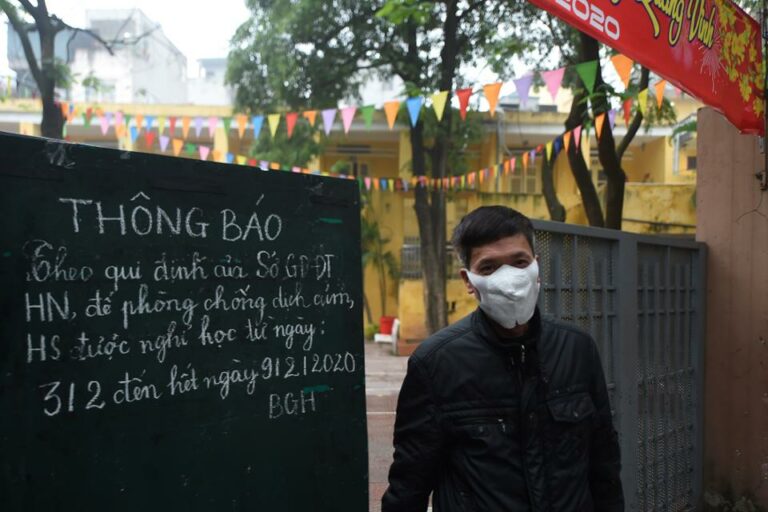 2020
Quang Vinh
THÔNG BÁO
Theo qui định của Sở GD-ĐT
HN, để phòng chống dịch cúm,
HS được nghỉ học từ ngày:
3/2 đến hết ngày 9/2/2020
BGH